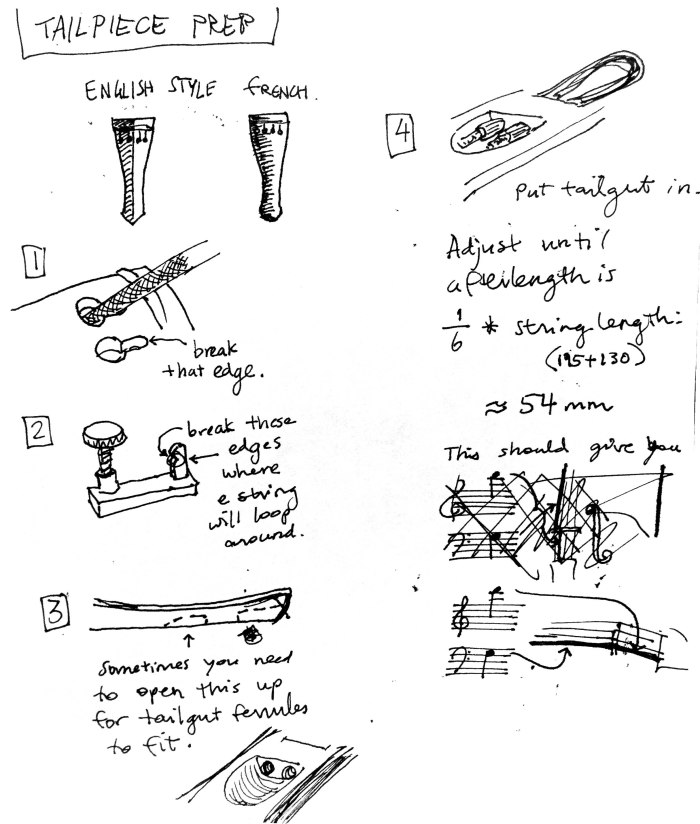 TAILPIECE PREP
ENGLISH STYLE
FRENCH.
1
break
that edge.
2
break these
edges
where
e string
will loop
around.
3
Sometimes you need
to open this up
for tailgut ferrules
to fit.
4
Put tailgut in.
Adjust until
afterlength is
1/6 * string length:
(195+130)
≈ 54 mm
This should give you